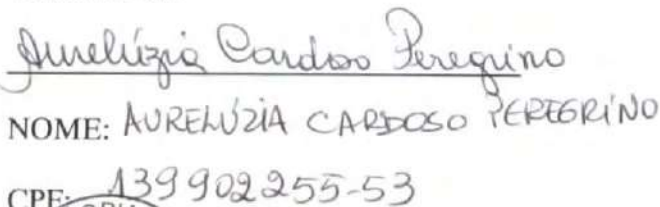 Aurelúzia Cardoso Peregrino
NOME: AURELÚZIA CARDOSO PEREGRINO
CPF: 139902255-53